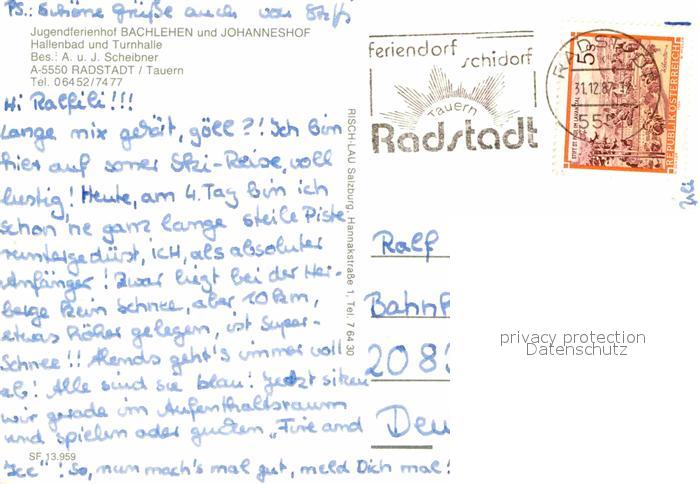 PS.: Schöne Grüße auch von
Jugendferienhof BACHLEHEN und JOHANNESHOF
Hallenbad und Turnhalle
Bes.: A. u. J. Scheibner
A-5550 RADSTADT / Tauern
Tel. 06452/7477
Hi Ralfili!!!
Lange nix gehört, göll?! Ich bin
hier auf soner Ski-Reise, voll
lustig! Heute, am 4. Tag bin ich
schon 'ne ganz lange steile Piste
runtergedüst, ich, als absoluter
Anfänger! Zwar liegt bei der Her-
berge kein Schnee, aber 10 km,
etwas höher gelegen, ist Super-
Schnee!! Abends geht's immer voll
ab! Alle sind sie blau! Jetzt sitzen
wir gerade im Aufenthaltsraum
und spielen oder gucken „Fire and
Ice"! So, nun mach's mal gut, meld Dich mal!
SF 13.959
RISCH-LAU Salzburg, Hannakstraße 1, Tel. 7 64 30
feriendorf schidorf
Tauern
Radstadt
RADSTADT
31.12.87
555
5S
REPUBLIK ÖSTERREICH
Ralf
Bahnh
208
Deu
privacy protection
Datenschutz